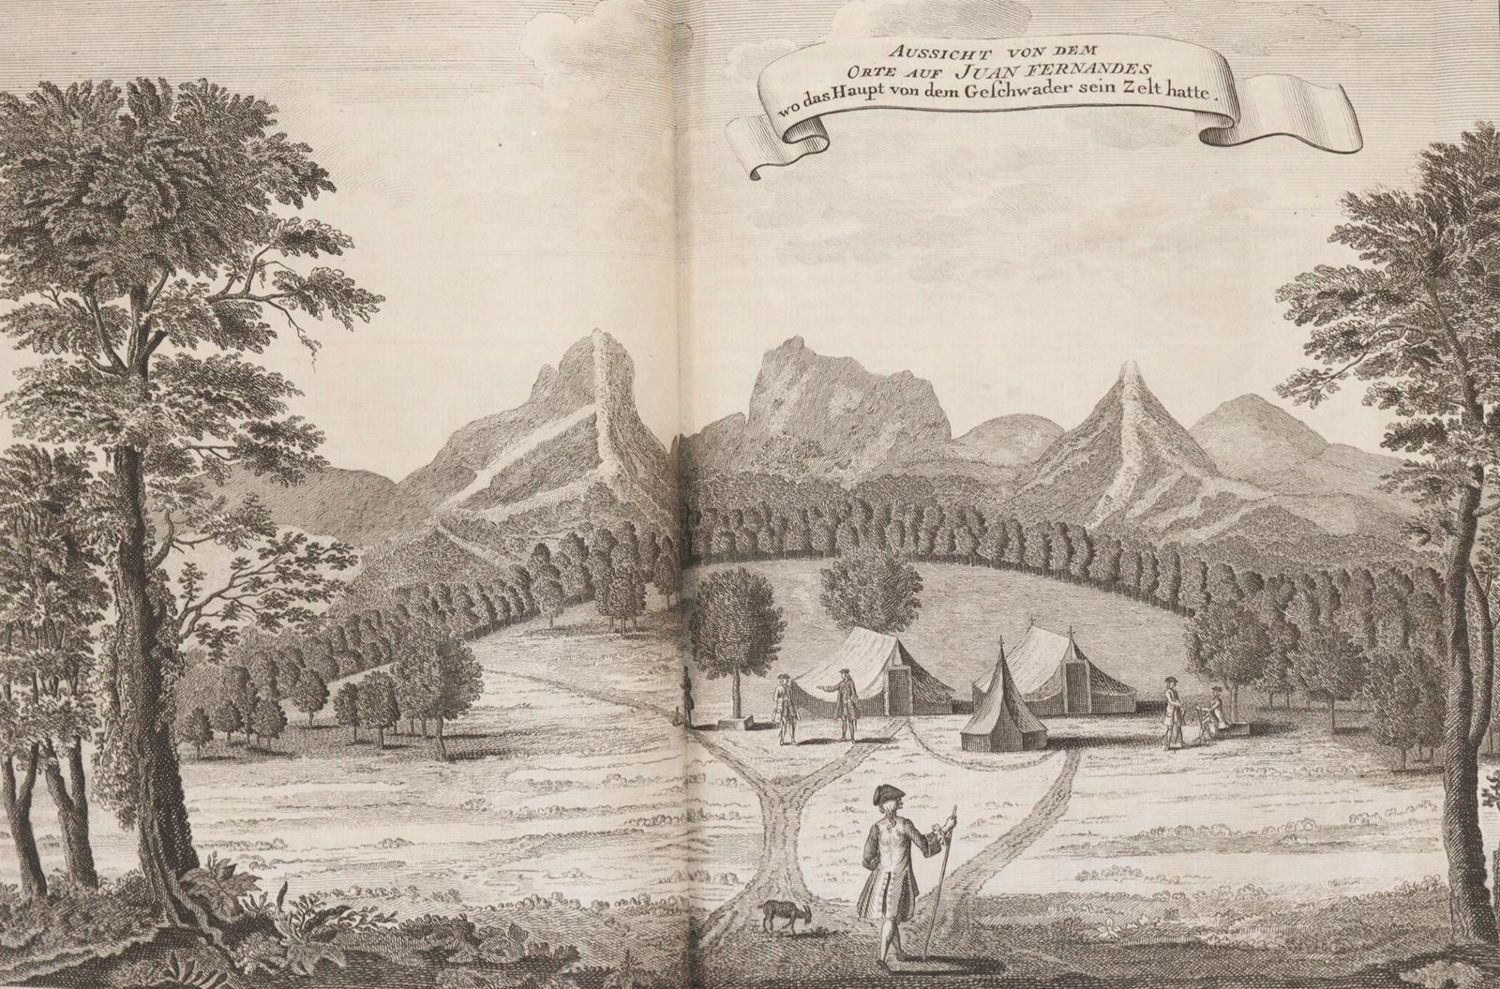 AUSSICHT VON DEM
ORTE AUF JUAN FERNANDES
wo das Haupt von dem Geſchwader sein Zelt hatte.